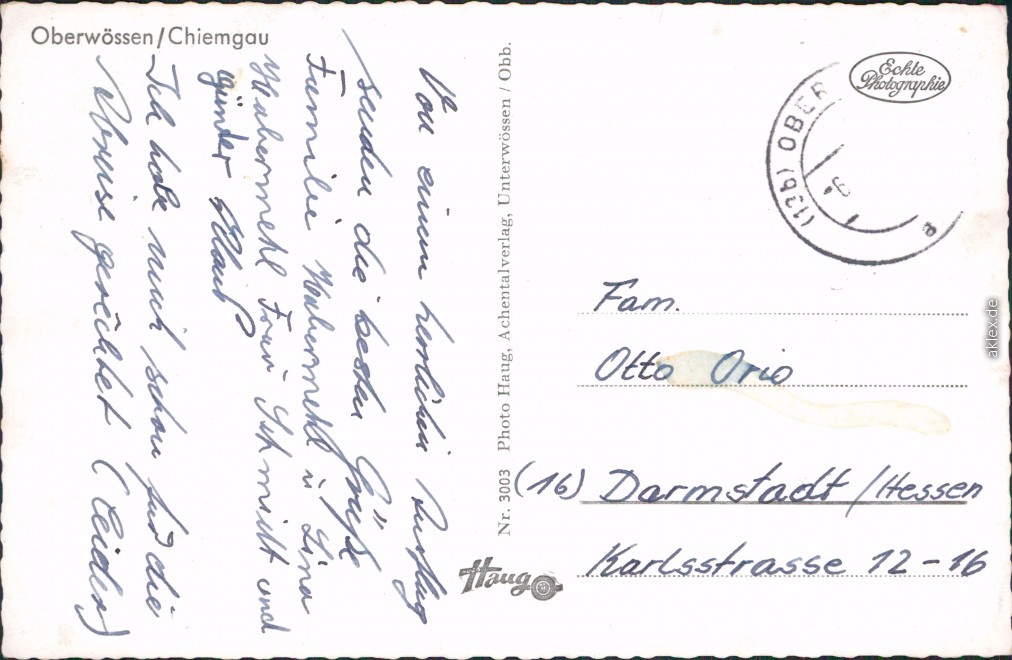 Oberwössen/Chiemgau
Von einem herrlichen Ausflug
senden die besten Grüße
Familie Habermehl u. Lina
Habermehl Frau Schmitt und
Günter
Ich habe mich schon für die
Abreise gerichtet (leider)
Nr. 3003 Photo Haug, Achentalverlag, Unterwössen / Obb.
Haug
Echte
Photographie
(13b) OBER
a
Fam.
Otto Orio
(16) Darmstadt/Hessen
Karlsstrasse 12-16
aklex.de